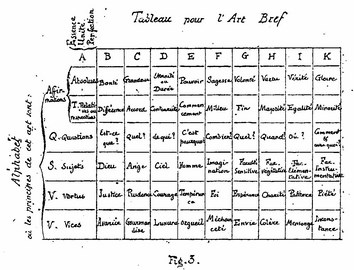 Tableau pour l'Art Bref
Essence
Unité
Perfection
A B C D E F G H I K
Absolues Bonté Grandeur Eternité ou Durée Pouvoir Sagesse Volonté Vertu Vérité Gloire
Affirmations
T. Différence Accord Contrariété Commencement Milieu Fin Majorité Egalité Minorité
Q. Questions Est-ce que? Quel? de quoi? C'est pourquoi Combien? Quel? Quand? Où? Comment
S. Sujets Dieu Ange Ciel Homme Imagination Sensitive
V. Vertus Justice Prudence Courage Tempérance Foi Espérance Charité Patience Piété
V. Vices Avarice Gourmandise Luxure Orgueil Méchanceté Envie Colère Mensonge Inconstance
Alphabet
où les principes de cet art sont:
Fig. 3.